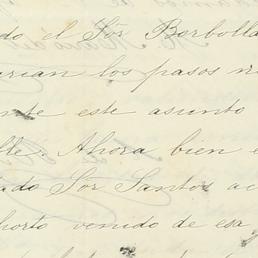 do el Sör Borbolla
erian los pasos
nte este asunto
lle. Ahora bien e
ado Sör Santos ac
horto venido de esa